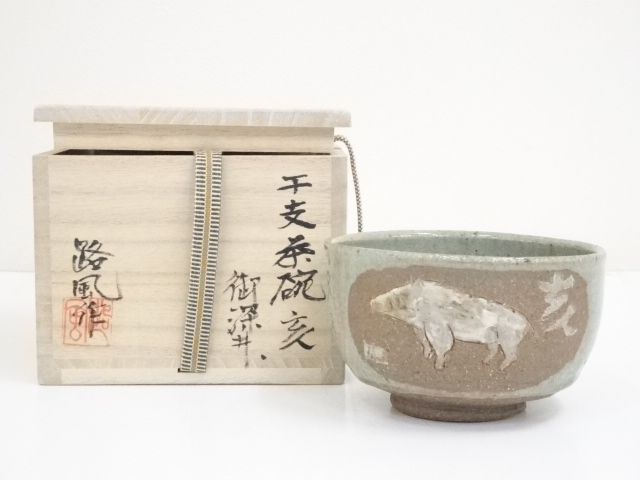 干支茶碗 亥
御深井
路風作
亥